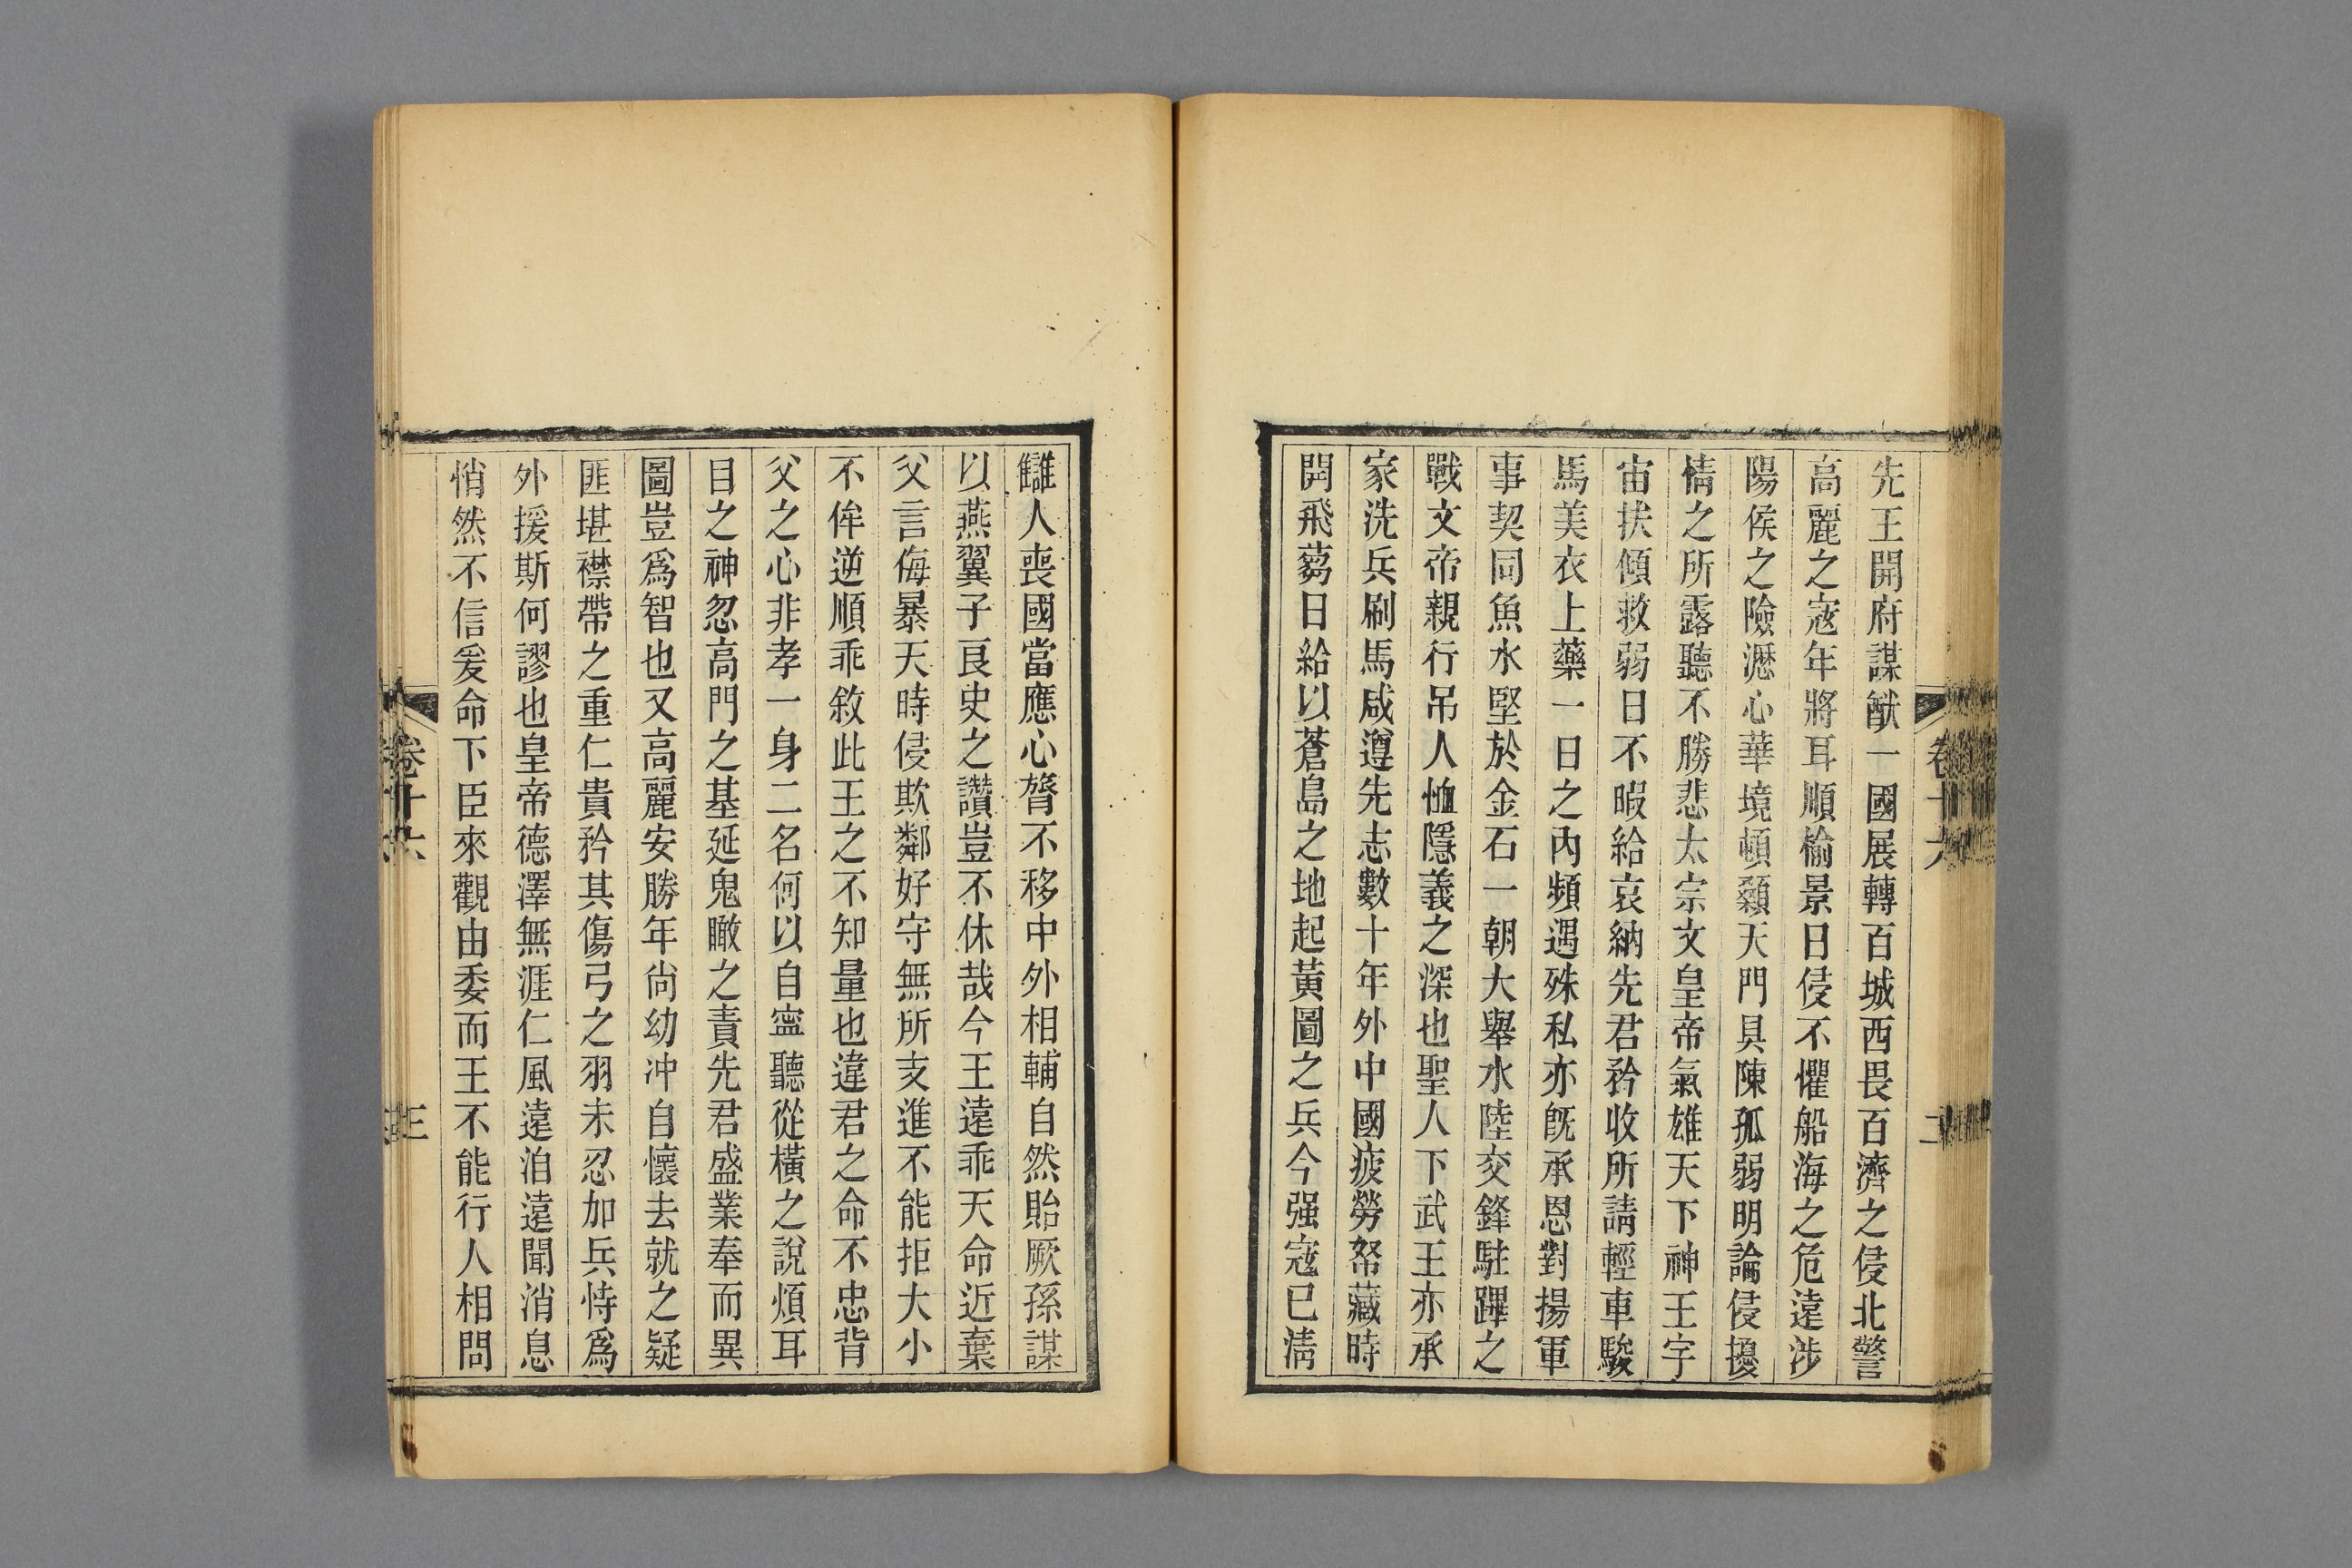 先王開府謀猷一國展轉百城西畏百濟之侵北警
高麗之寇年將耳順榆景日侵不懼船海之危遠涉
陽侯之險瀝心華境頓顙天門具陳孤弱明論侵擾
情之所露聽不勝悲太宗文皇帝氣雄天下神王宇
宙扶傾救弱日不暇給哀納先君矜收所請輕車駿
馬美衣上藥一日之內頻遇殊私亦旣承恩對揚軍
事契同魚水堅於金石一朝大舉水陸交鋒駐蹕之
戰文帝親行吊人恤隱義之深也聖人下武王亦承
家洗兵刷馬咸遵先志數十年外中國疲勞帑藏時
開飛蒭日給以蒼島之地起黃圖之兵今强寇已淸
卷十六
二
讎人喪國當應心膂不移中外相輔自然貽厥孫謀
以燕翼子良史之讚豈不休哉今王遠乖天命近棄
父言侮暴天時侵欺鄰好守無所支進不能拒大小
不侔逆順乖敘此王之不知量也違君之命不忠背
父之心非孝一身二名何以自寧聽從橫之說煩耳
目之神忽高門之基延鬼瞰之責先君盛業奉而異
圖豈爲智也又高麗安勝年尙幼冲自懷去就之疑
匪堪襟帶之重仁貴矜其傷弓之羽未忍加兵恃爲
外援斯何謬也皇帝德澤無涯仁風遠泊遠聞消息
悄然不信爰命下臣來觀由委而王不能行人相問
卷十六
三